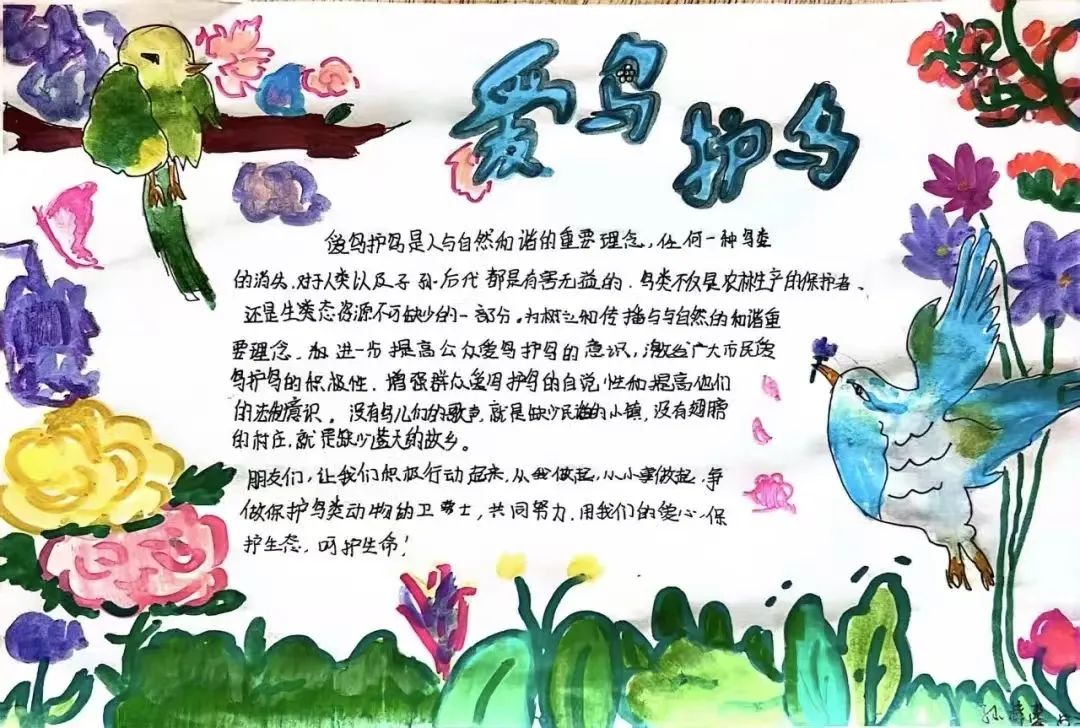 爱鸟护鸟
爱鸟护鸟是人与自然和谐的重要理念，任何一种鸟类
的消失，对于人类以及子孙后代都是有害无益的．鸟类不仅是农林生产的保护者．
还是生态资源不可缺少的一部分。为树立和传播与自然的和谐重
要理念．为进一步提高公众爱鸟护鸟的意识，激发广大市民爱
鸟护鸟的积极性．增强群众爱鸟护鸟的自觉性和提高他们
的法制意识。没有鸟儿们的歌声，就是缺少民谣的小镇，没有翅膀
的村庄，就是缺少蓝天的故乡。
朋友们，让我们积极行动起来，从我做起，从小事做起，争
做保护鸟类动物的卫士，共同努力．用我们的爱心，保
护生态，呵护生命！